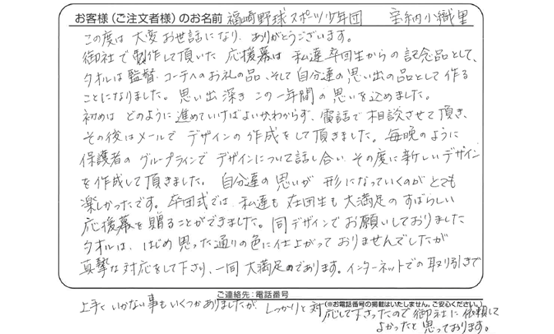 お客様(ご注文者様)のお名前 福崎野球スポーツ少年団 宝納小織里
この度は大変お世話になり、ありがとうございます。
御社で製作して頂いた応援幕は私達卒団生からの記念品として、
タオルは監督、コーチへのお礼の品、そして自分達の思い出の品として作る
ことになりました。思い出深きこの一年間の思いを込めました。
初めはどのように進めていけばよいかわからず、電話で相談させて頂き、
その後はメールでデザインの作成をして頂きました。毎晩のように
保護者のグループラインでデザインについて話し合い、その度に新しいデザイン
を作成して頂きました。自分達の思いが形になっていくのがとても
楽しかったです。卒団式では、私達も在団生も大満足のすばらしい
応援幕を贈ることができました。同デザインでお願いしておりました
タオルは、はじめ思った通りの色に仕上がっておりませんでしたが
真摯な対応をして下さり、一同大満足であります。インターネットでの取り引きで
ご連絡先:電話番号
(※お電話番号の掲載はいたしません。ご安心ください。)
上手くいかない事もいくつかありましたが、しっかりと対応して下さったので御社に依頼して
よかったと思っております。